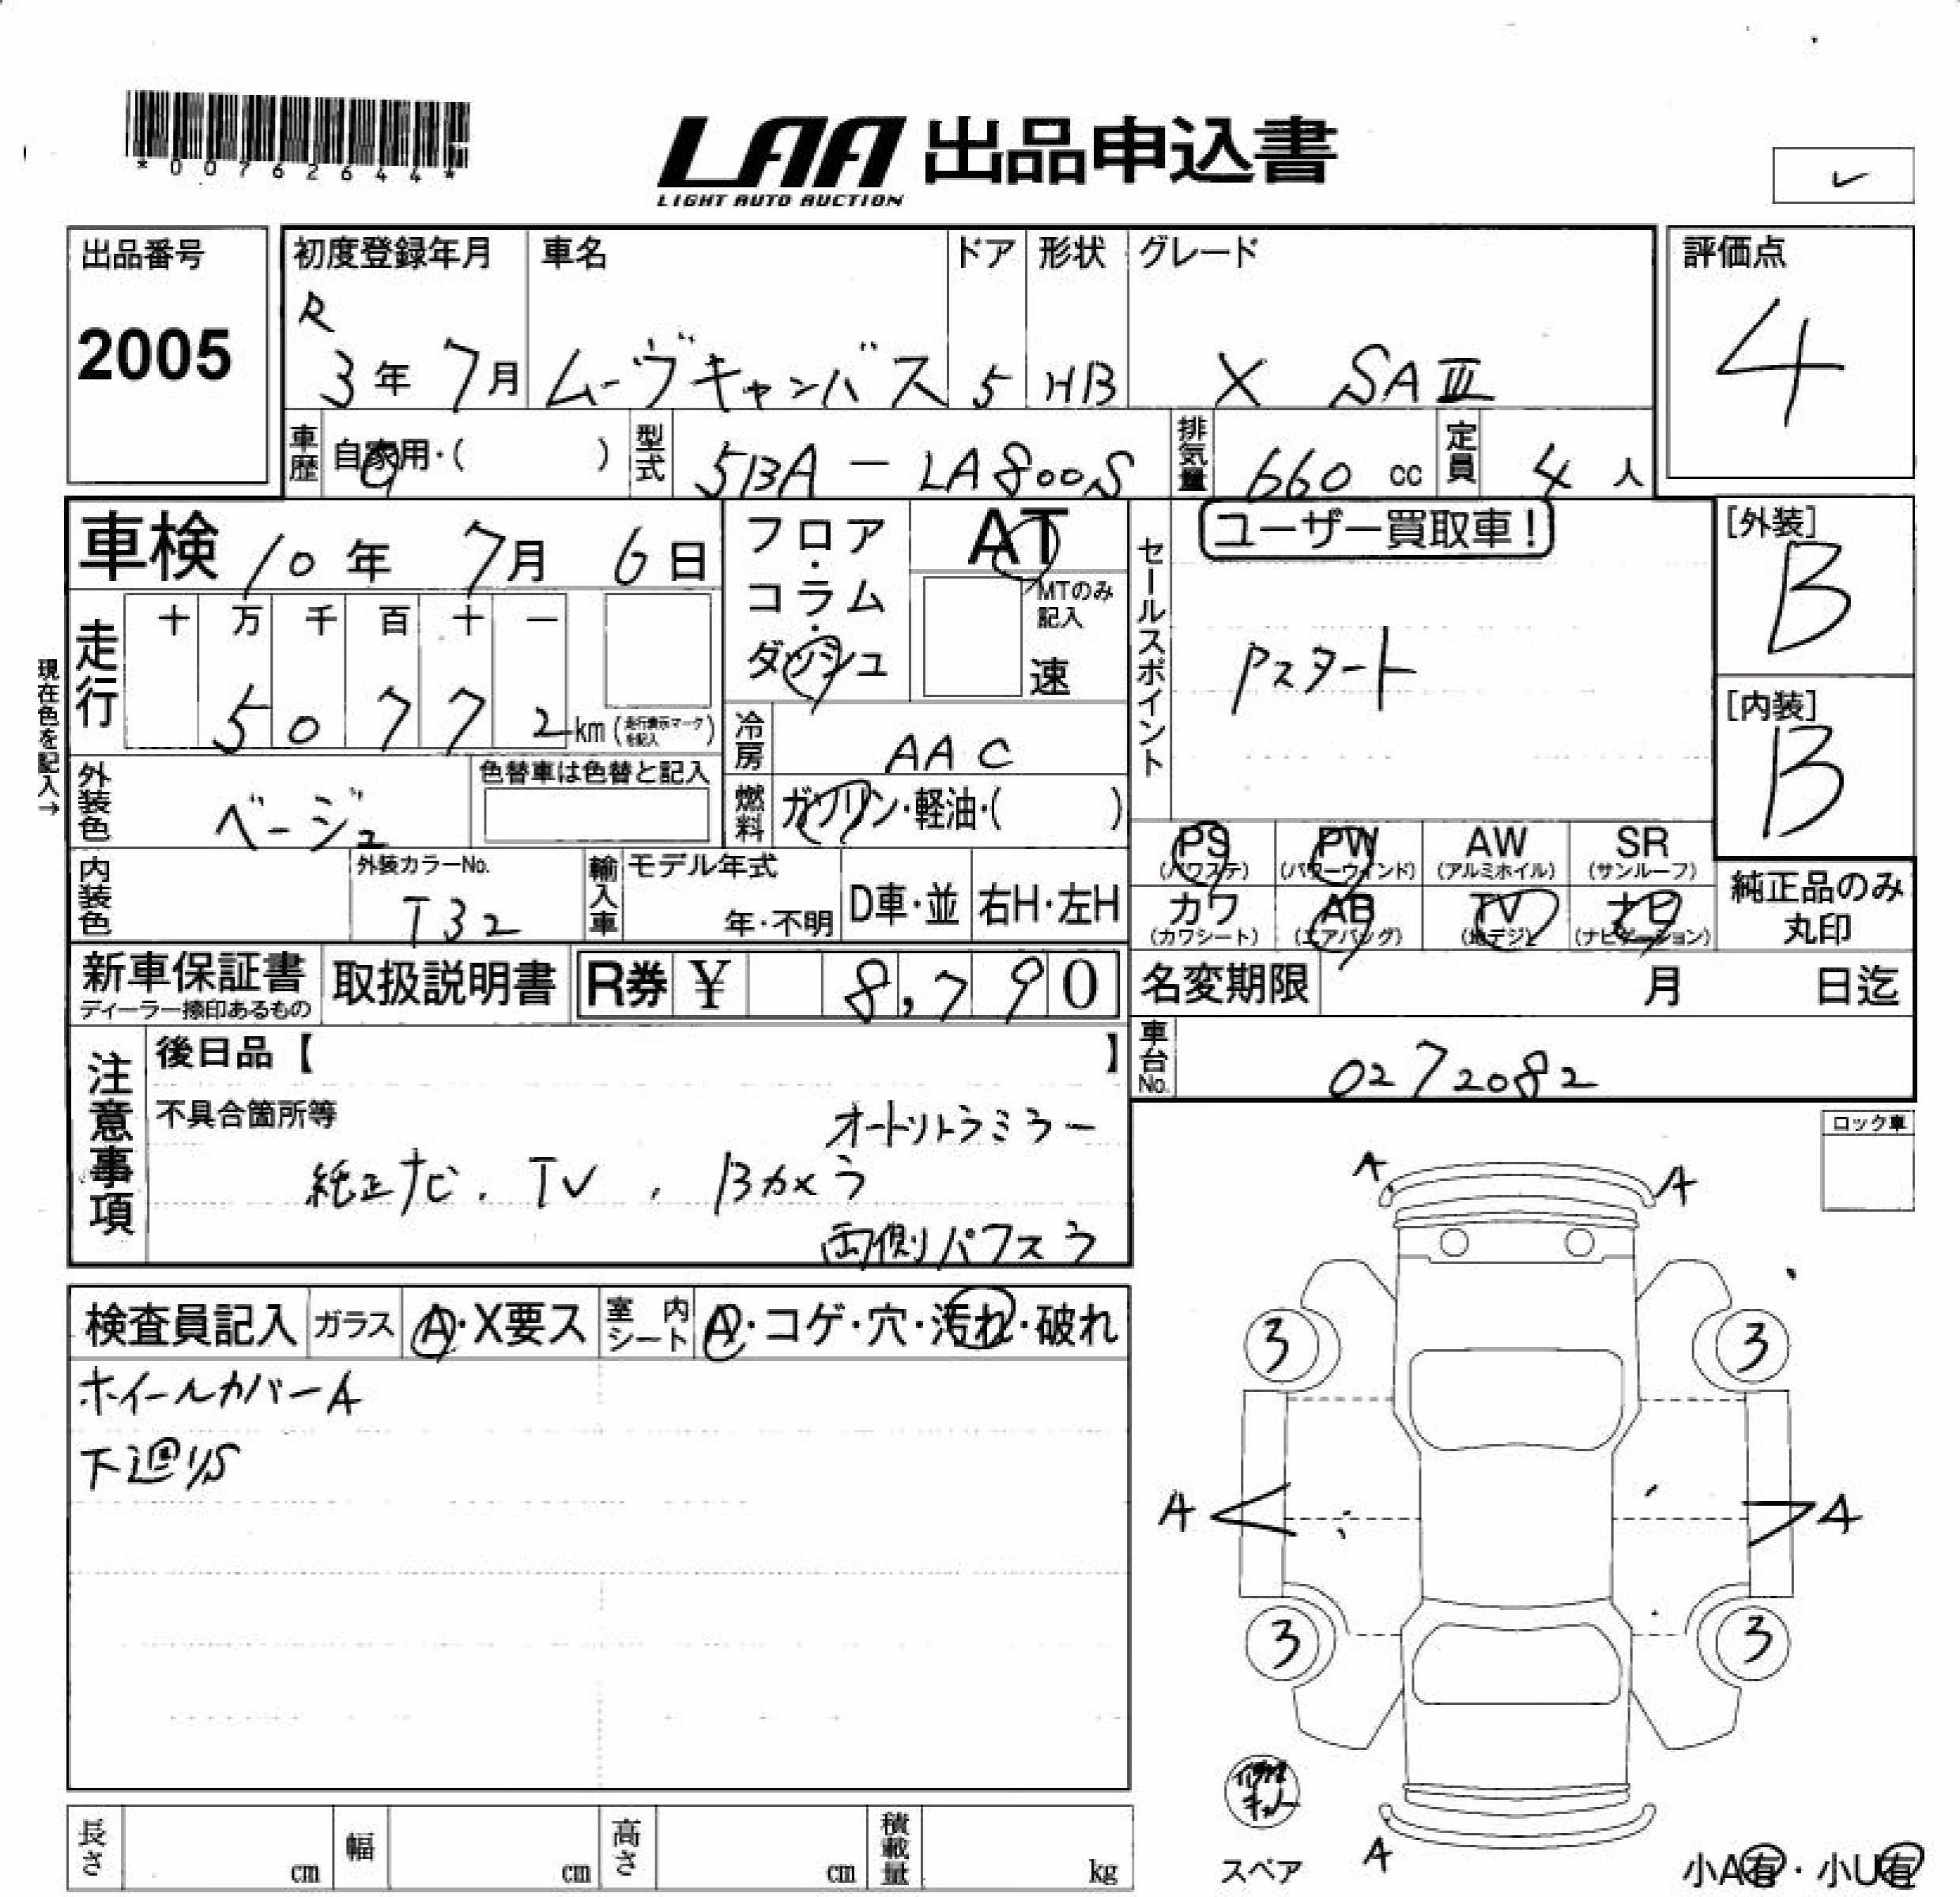 *00762644*
LAA 出品申込書
LIGHT AUTO AUCTION
✓
出品番号
2005
初度登録年月
R
3年 7月
車名
ムーヴキャンバス
ドア
5
形状
HB
グレード
X SAⅢ
評価点
4
車歴
自家用・( )
型式
5BA - LA800S
排気量
660 cc
定員
4 人
車検 10年 7月 6日
フロア・コラム・ダッシュ
AT
MTのみ記入
速
セールスポイント
ユーザー買取車!
Pスタート
[外装]
B
[内装]
B
現在色を記入→
走行
十 万 千 百 十 一
5 0 7 7 2 km (走行表示マークを記入)
冷房
AAC
外装色
ベージュ
色替車は色替と記入
燃料
ガソリン・軽油・( )
PS
(パワステ)
PW
(パワーウィンド)
AW
(アルミホイル)
SR
(サンルーフ)
内装色
外装カラーNo.
T32
輸入車
モデル年式
年・不明
D車・並
右H・左H
カワ
(カワシート)
AB
(エアバッグ)
TV
(地デジ)
ナビ
(ナビゲーション)
純正品のみ
丸印
新車保証書
ディーラー捺印あるもの
取扱説明書
R券 ¥ 8,790
名変期限 月 日迄
車台No.
0272082
注意事項
後日品【 】
不具合箇所等
オートリトラミラー
純正ナビ、TV、Bカメラ
両側パワスラ
ロック車
検査員記入
ガラス
A・X要ス
室内シート
A・コゲ・穴・汚れ・破れ
ホイールカバーA
下廻りS
A A
3 3
A A
3 3
A
スペア
長さ cm
幅 cm
高さ cm
積載量 kg
小A有・小U有